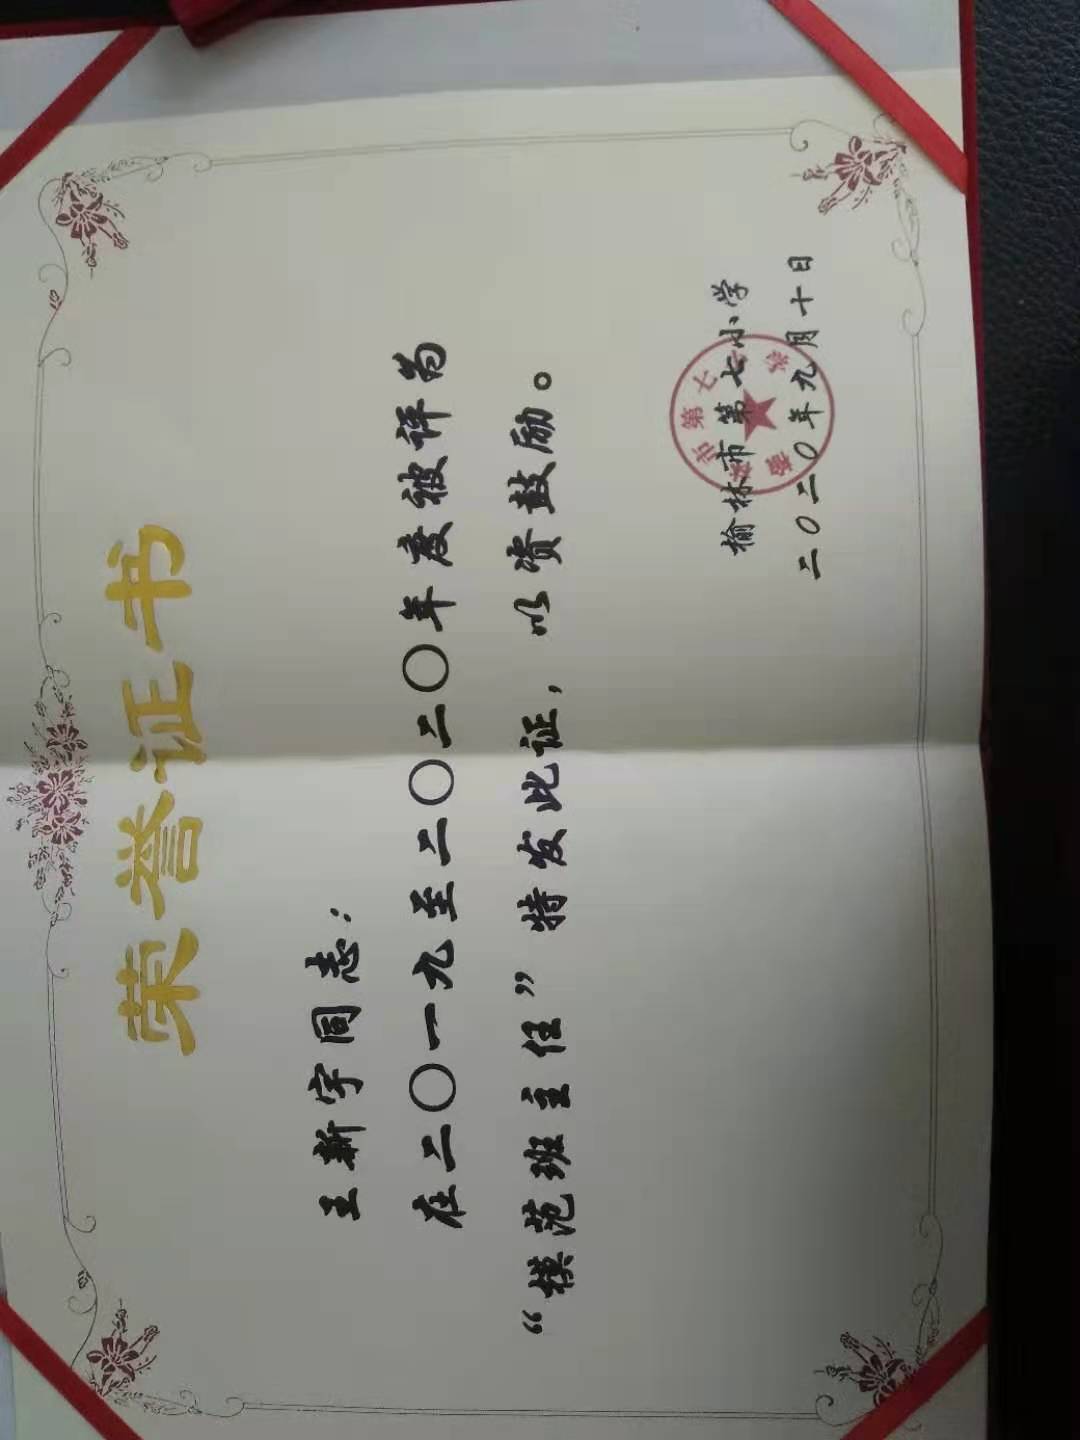 荣誉证书
王新宇同志：
在二〇一九至二〇二〇年度被评为
“模范班主任”特发此证，以资鼓励。
榆林市第七小学
二〇二〇年九月十日
市第七